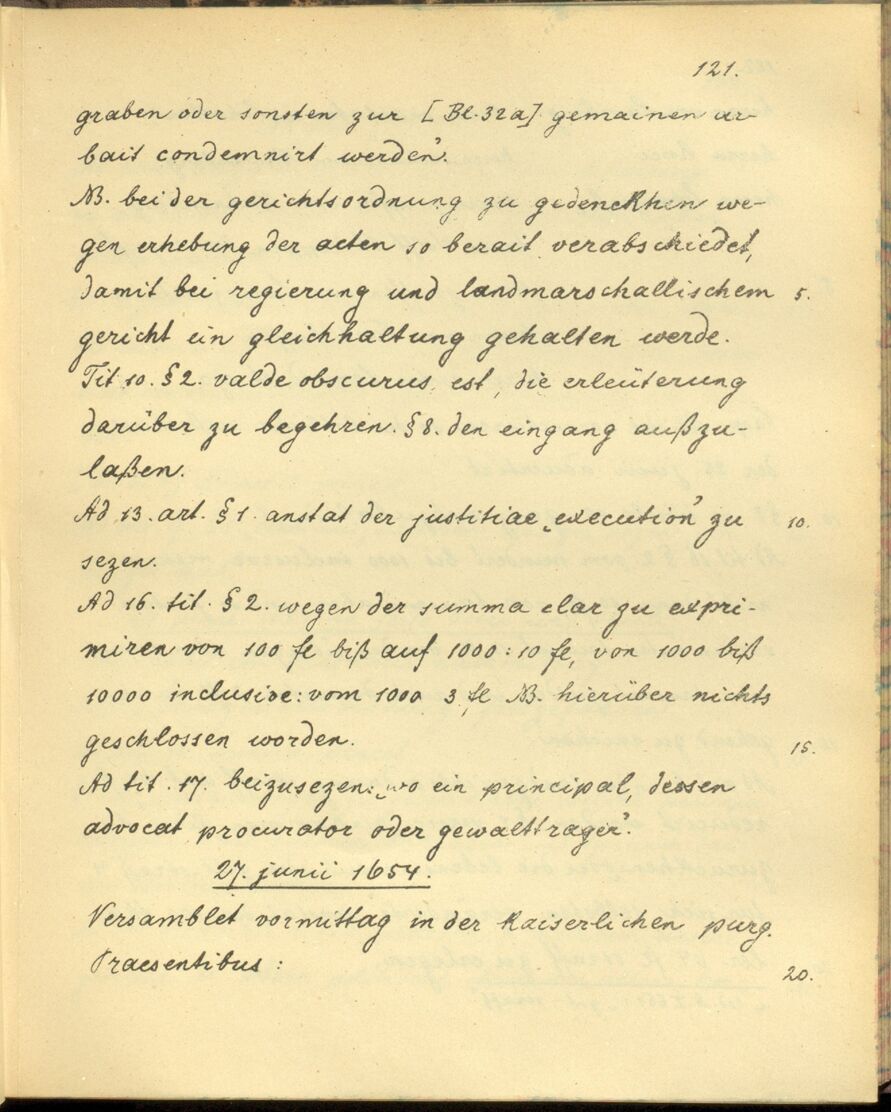 121.
graben oder sonsten zur [Bl. 32a] gemainen ar-
bait condemnirt werden“.
NB. bei der gerichtsordnung zu gedenckhen we-
gen erhebung der acten so berait verabschiedet,
damit bei regierung und landmarschallischem 5.
gericht ein gleichhaltung gehalten werde.
Tit 10. § 2. valde obscurus est, die erleüterung
darüber zu begehren. § 8. den eingang außzu-
laßen.
Ad 13. art. § 1. anstat der justitiae „execution“ zu 10.
sezen.
Ad 16. tit. § 2. wegen der summa clar zu expri-
miren von 100 fl biß auf 1000 : 10 fl, von 1000 biß
10000 inclusive: vom 1000 3 fl NB. hierüber nichts
geschlossen worden. 15.
Ad tit. 17. beizusezen: „wo ein principal, dessen
advocat procurator oder gewalttrager“.
27. junii 1654.
Versamblet vormittag in der kaiserlichen purg.
Praesentibus : 20.